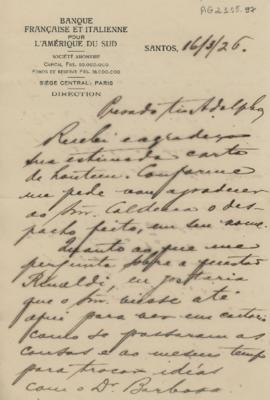 AG2155.97
BANQUE
FRANÇAISE ET ITALIENNE
POUR
L'AMÉRIQUE DU SUD
SOCIÉTÉ ANONYME
CAPITAL FRS. 50.000.000
FONDS DE RÉSERVE FRS.
SIÈGE CENTRAL: PARIS
DIRECTION
SANTOS, 16/3/26.
Prezado tio Adolpho
Recebi e agradeço
sua estimada carta
de hontem. Conforme
me pede vou agradecer
ao Snr. Caldeira o des-
pacho feito, em seu nome.
Quanto ao que me
pergunta sobre a questão
Rinaldi, eu gostaria
que o Snr. viesse até
aqui para ver em cartorio
como se passaram as
cousas e ao mesmo tempo
para trocar idéas
com o Dr. Barbosa.